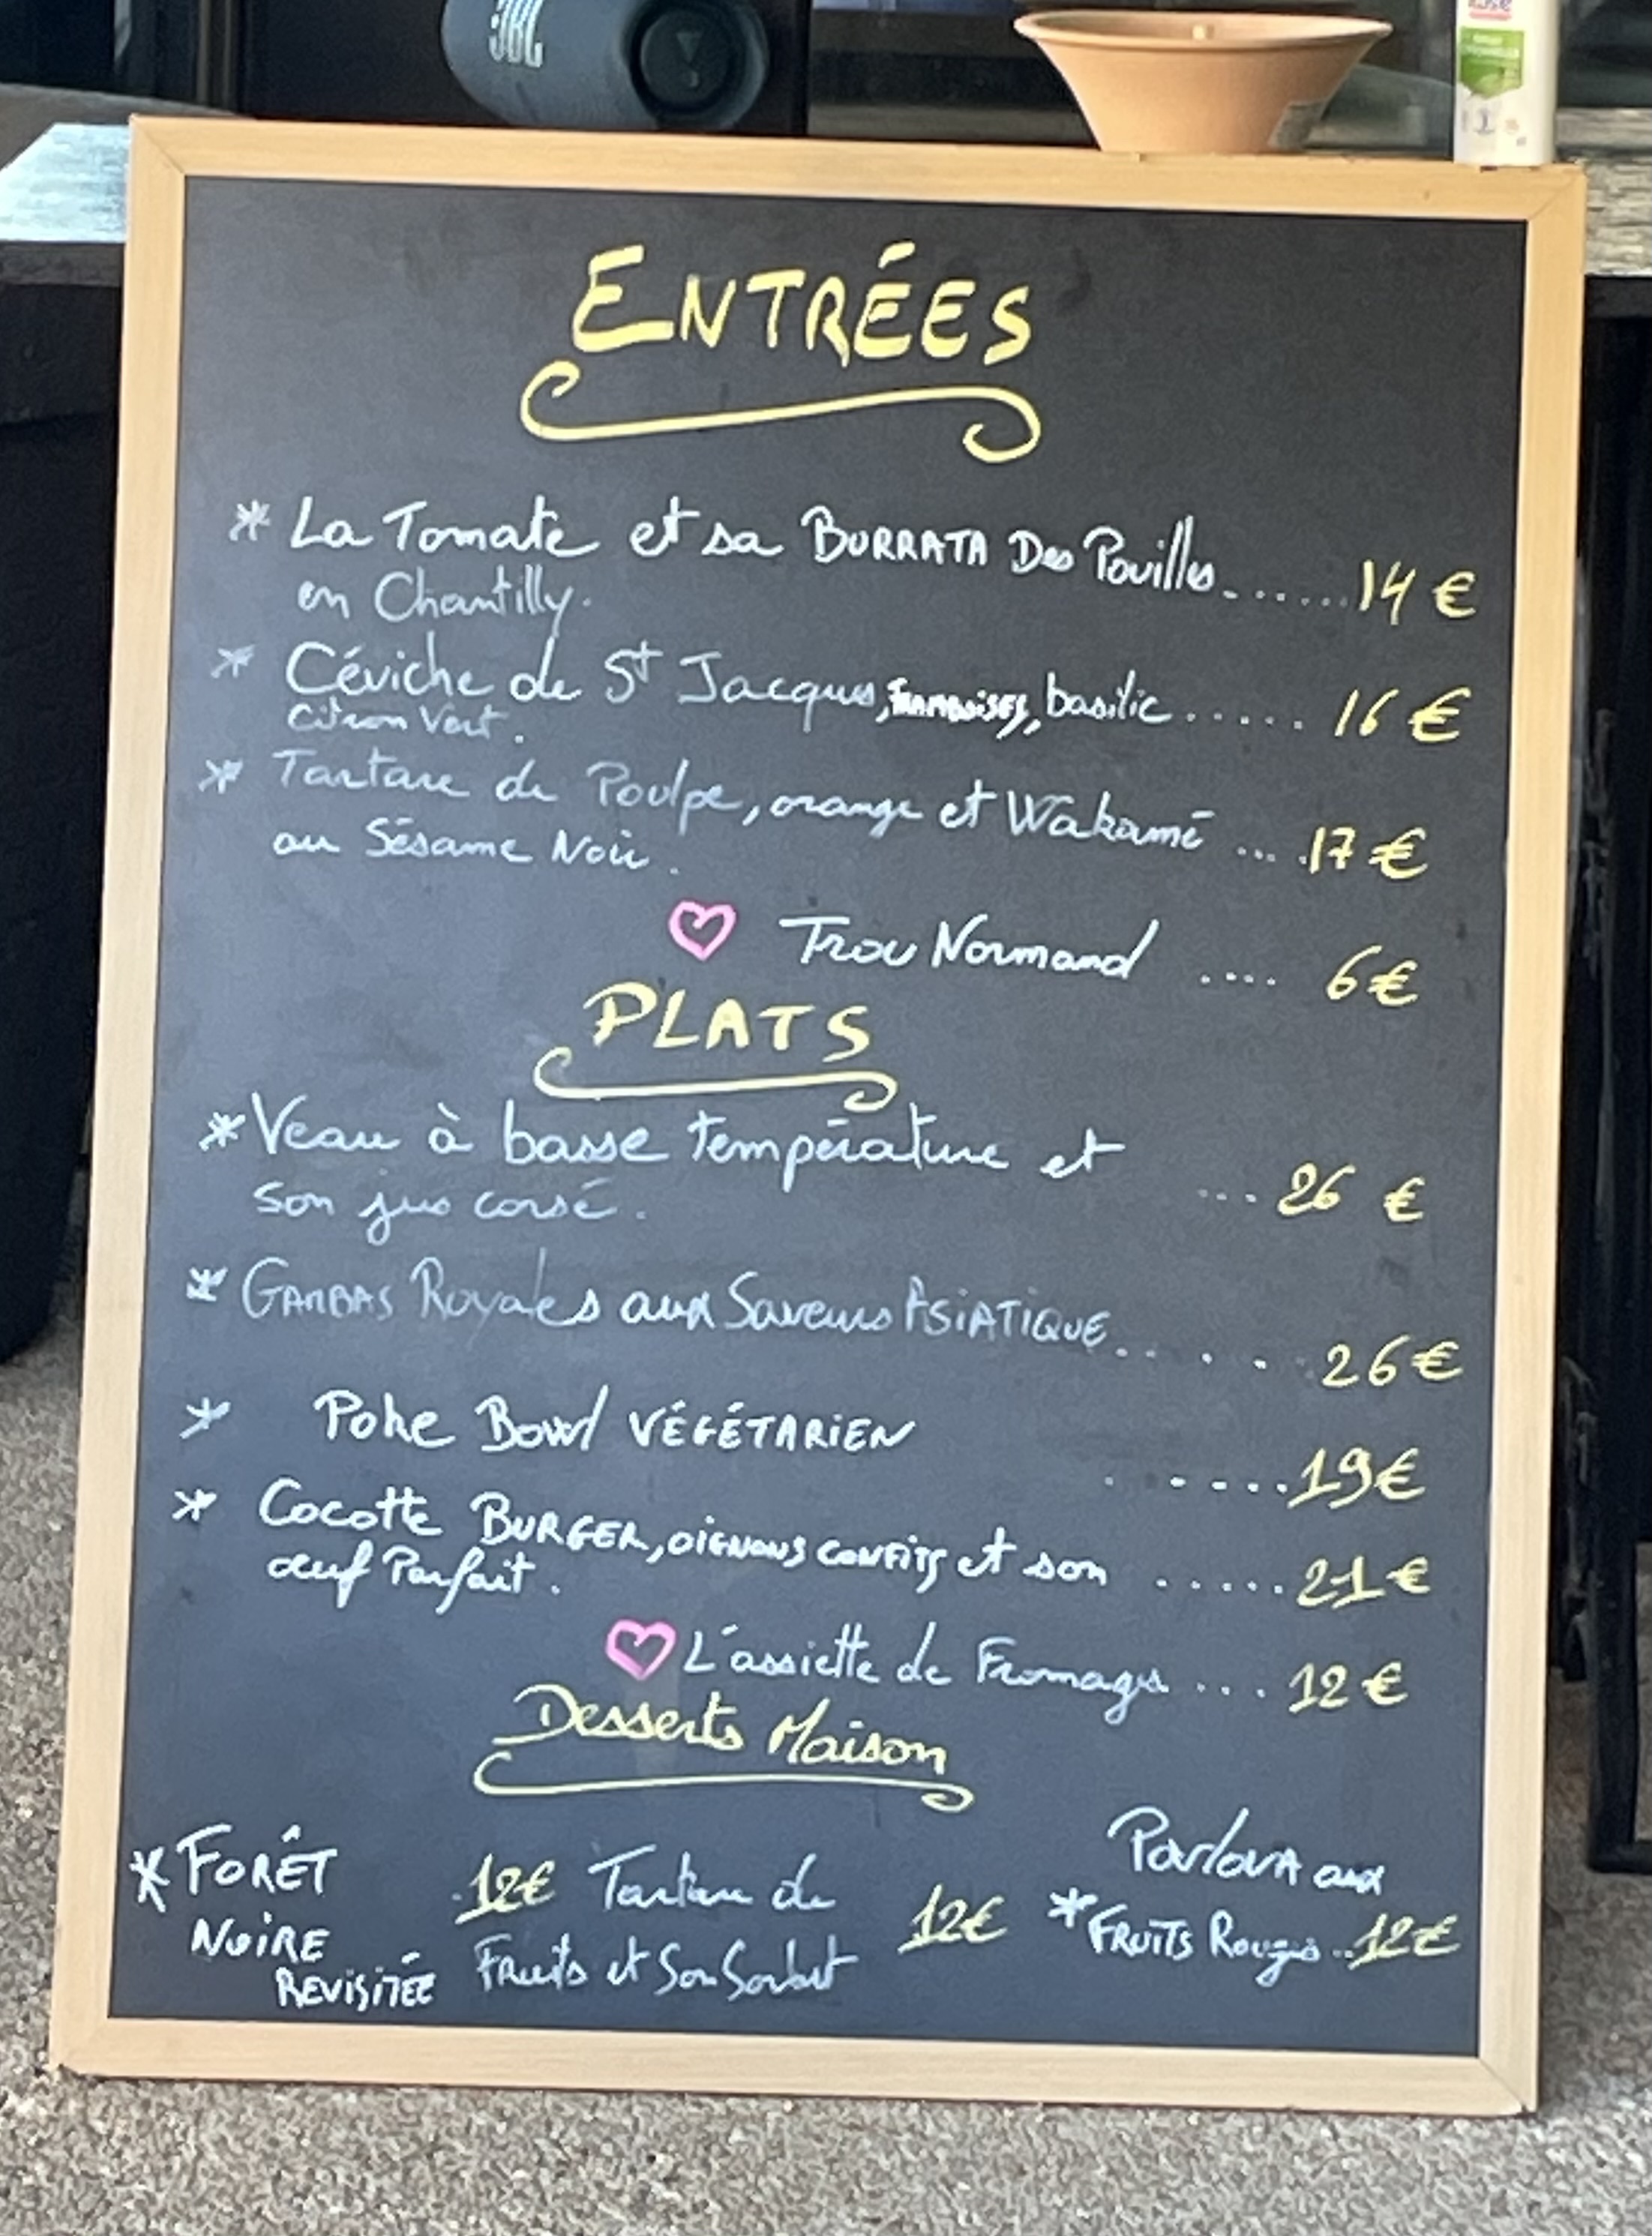 JBL
ENTRÉES
* La Tomate et sa BURRATA Des Pouilles ...... 14 €
en Chantilly.
* Céviche de St Jacques, FRAMBOISES, basilic ..... 16 €
Citron Vert.
* Tartare de Poulpe, orange et Wakamé .... 17 €
au Sésame Noir.
♡ Trou Normand .... 6 €
PLATS
* Veau à basse température et ... 26 €
son jus corsé.
* GAMBAS Royales aux Saveurs ASIATIQUE .... 26 €
* Poke Bowl VÉGÉTARIEN ..... 19 €
* Cocotte BURGER, OIGNONS CONFITS et son ..... 21 €
œuf Parfait.
♡ L'assiette de Fromages ... 12 €
Desserts Maison
* FORÊT
NOIRE
REVISITÉE
12€ Tartare de
Fruits et Son Sorbet
12€
Pavlova aux
* FRUITS Rouges .. 12€